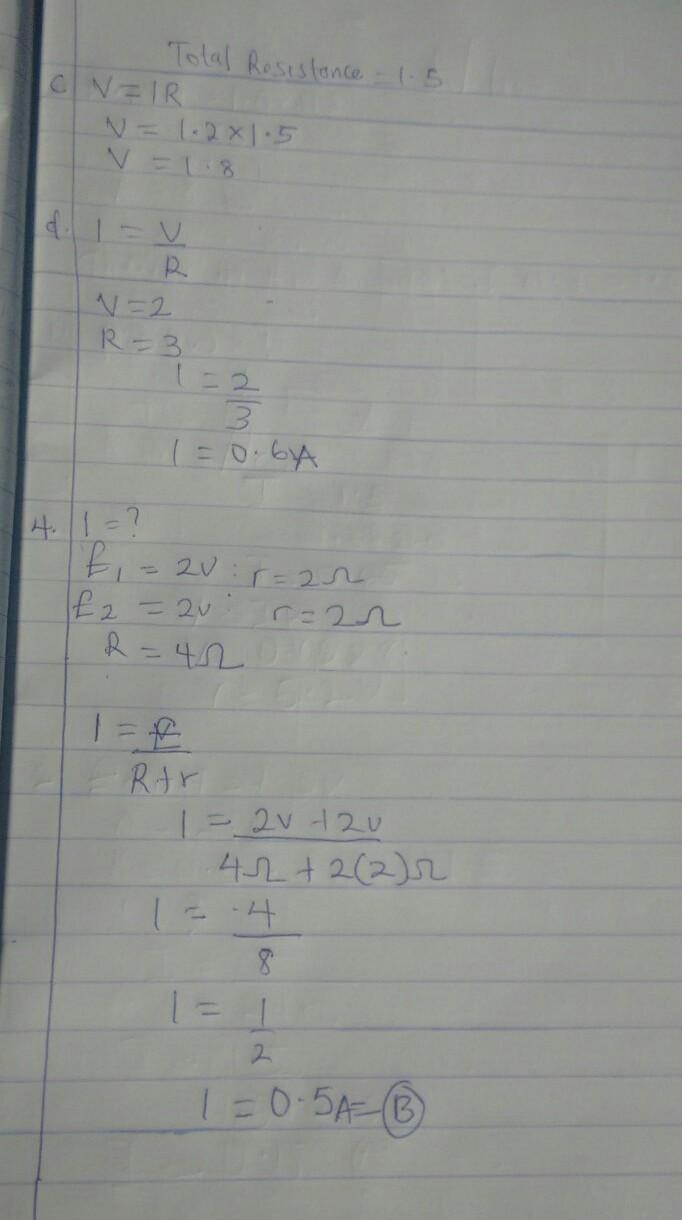 Total Resistance = 1.5
c V = IR
V = 1.2 × 1.5
V = 1.8
d. I = V
R
V = 2
R = 3
I = 2
3
I = 0.6A
4. I = ?
E1 = 2v : r = 2Ω
E2 = 2v : r = 2Ω
R = 4Ω
I = E
R + r
I = 2v + 2v
4Ω + 2(2)Ω
I = 4
8
I = 1
2
I = 0.5A = B